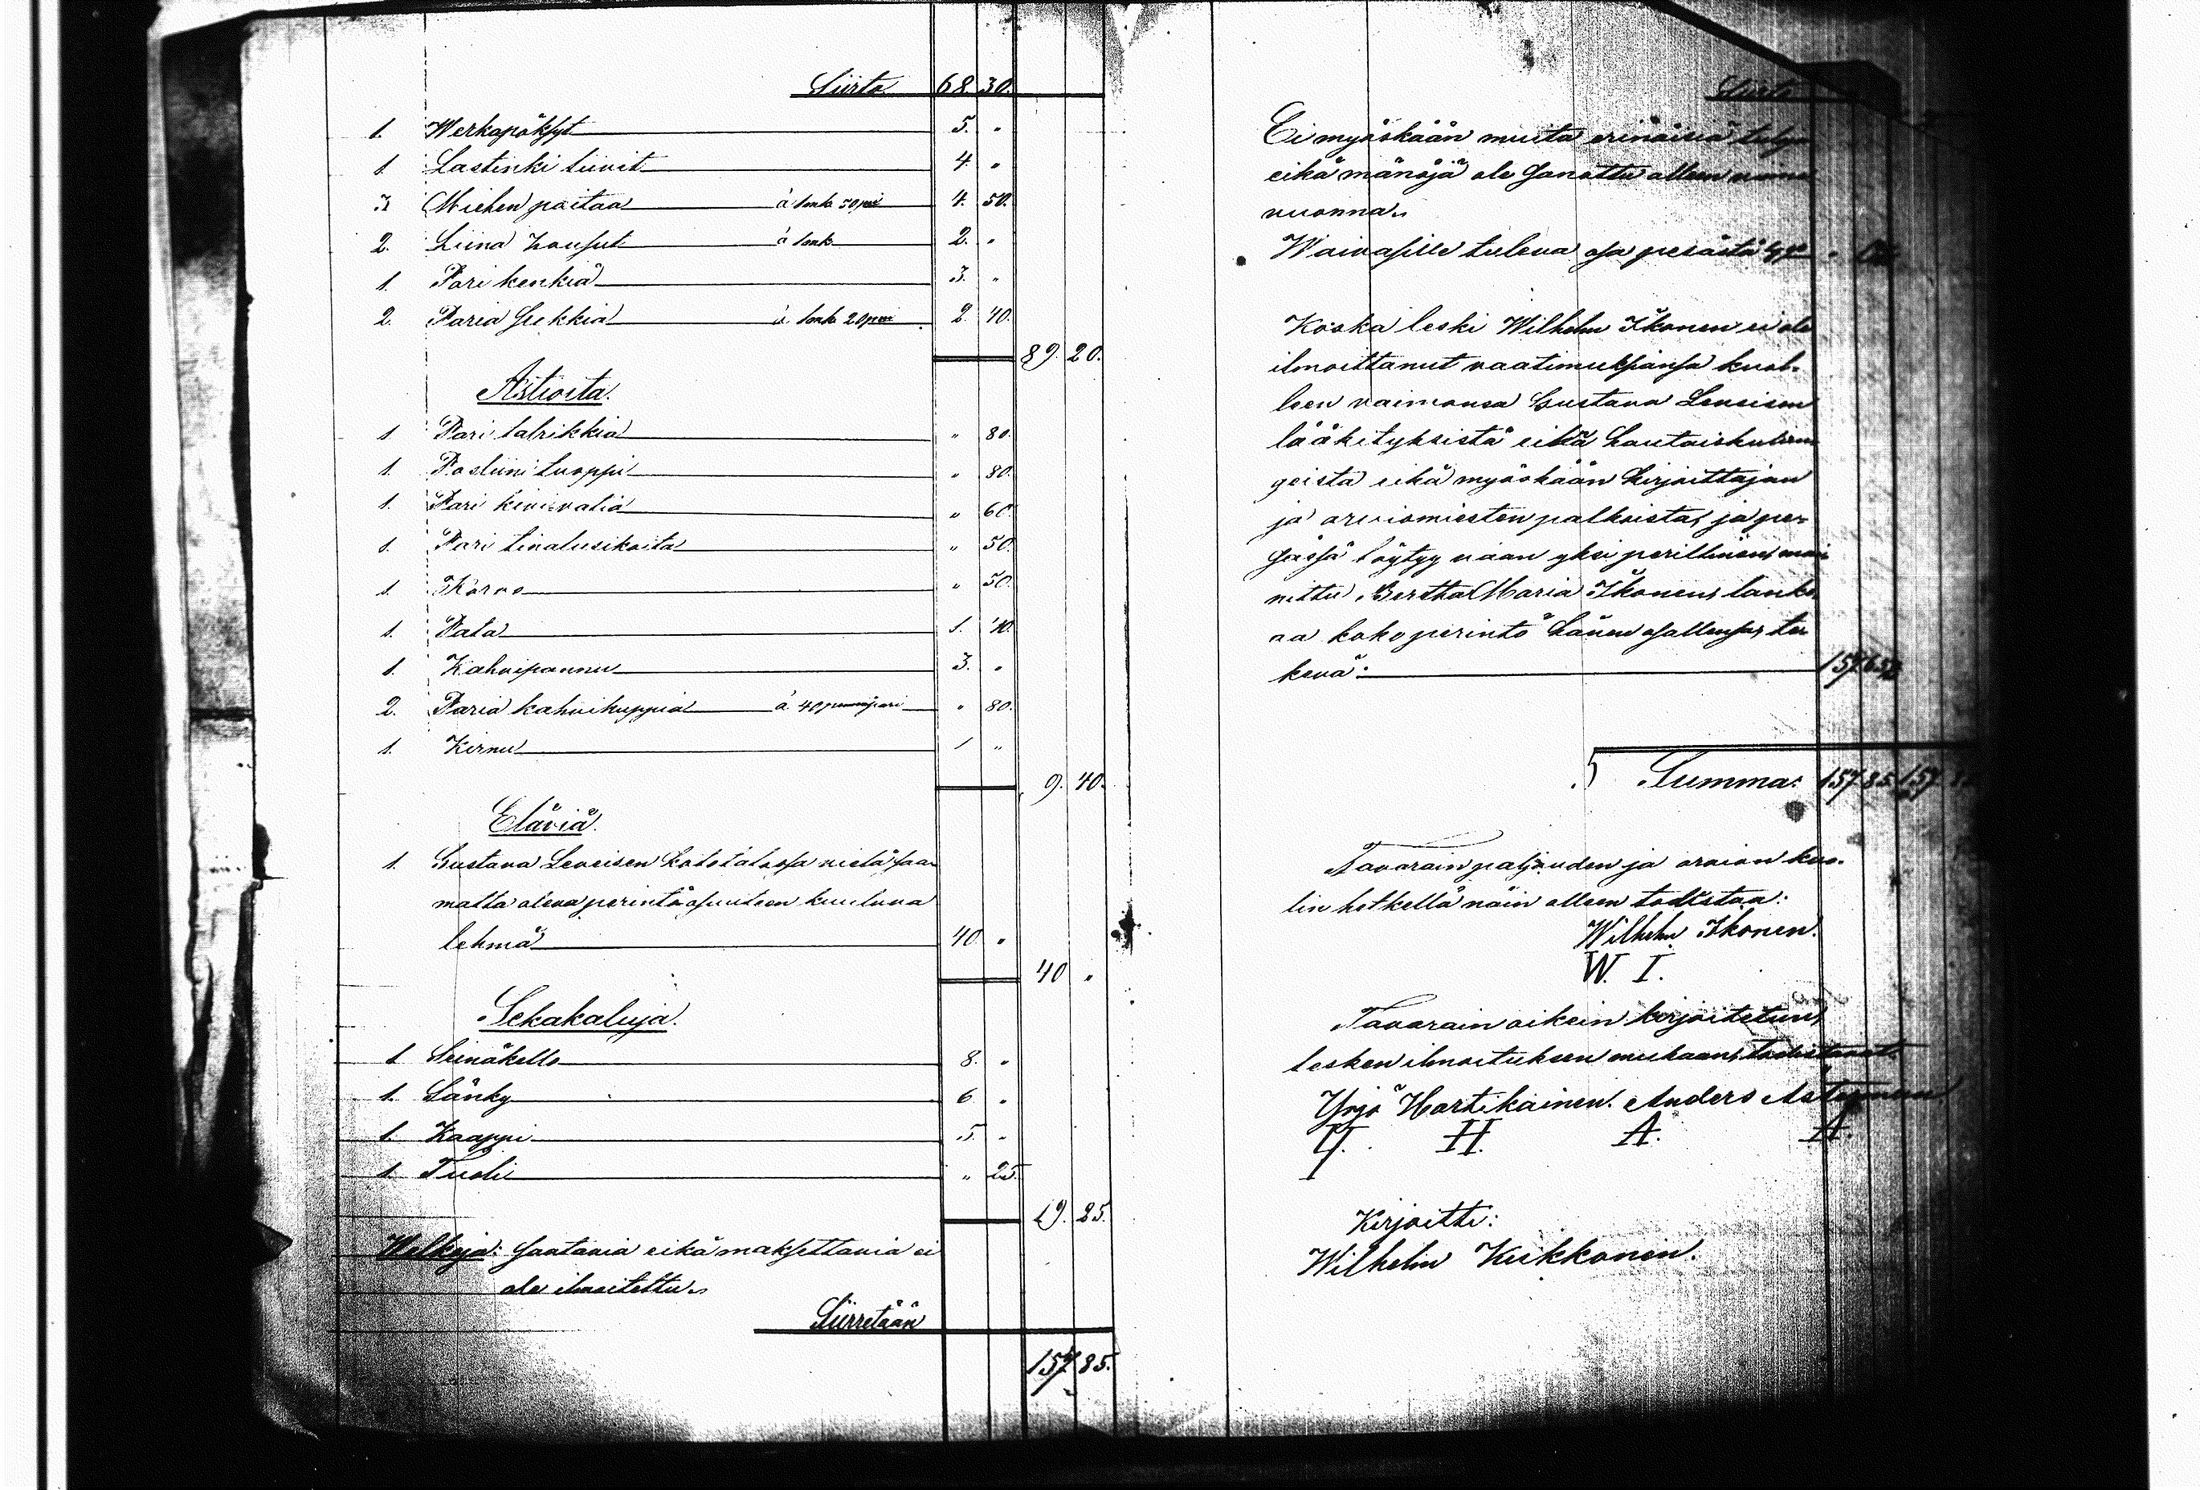 Siirto 68. 30.
1. Werkapöksyt 5. "
1. Lastinki liivit 4. "
3 Miehen paitaa à 1mk 50pni 4. 50.
2. Liina housut à 1mk 2. "
1. Pari kenkiä 3. "
2. Paria sukkia à 1mk 20pni 2. 40.
89. 20.
Astioita.
1. Pari talrikkia " 80.
1. Posliini tuoppi " 80.
1. Pari kivivatia " 60.
1. Pari tinalusikoita " 50.
1. Korvo " 50.
1. Pata 1. 40.
1. Kahvipannu 3. "
2. Paria kahvikuppia à 40 penniä pari " 80.
1. Kirnu 1 "
9. 40.
Eläviä.
1. Gustava Leveisen kototalossa vielä saa-
matta oleva perintöosuuteen kuuluva
lehmä 40. "
40 "
Sekakaluja.
1. Seinäkello 8. "
1. Sänky 6 "
1. Kaappi 5 "
1. Tuoli " 25.
19. 25.
Welkoja: saatavia eikä maksettavia ei
ole ilmoitettu.
Siirretään
157 85.
Siirto
Ei myöskään muita erinäisiä tuloja
eikä mänöjä ole sanottu olleen viime
vuonna.
Waivasille tuleva osa pesästä
Koska leski Wilhelm Ikonen ei ole
ilmoittanut vaatimuksiansa kuol-
leen vaimonsa Gustava Leveisen
lääkityksistä eikä hautaiskulun
geista eikä myöskään kirjoittajan
ja arviomiesten palkoista, ja pe-
sässä löytyy vaan yksi perillinen, mai
nittu Bertha Maria Ikonen, lanke
aa koko perintö hänen osallensa, te
kevä: 157
Summa: 157 85. 157 85
Tavarain paljouden ja arvion kuo-
lin hetkellä näin olleen todistaa:
Wilhelm Ikonen.
W. I.
Tavarain oikein kirjoitetun,
lesken ilmoituksen mukaan, todistavat.
Yrjö Hartikainen. Anders
Y. H. A. A.
Kirjoitti:
Wilhelm Kukkonen.